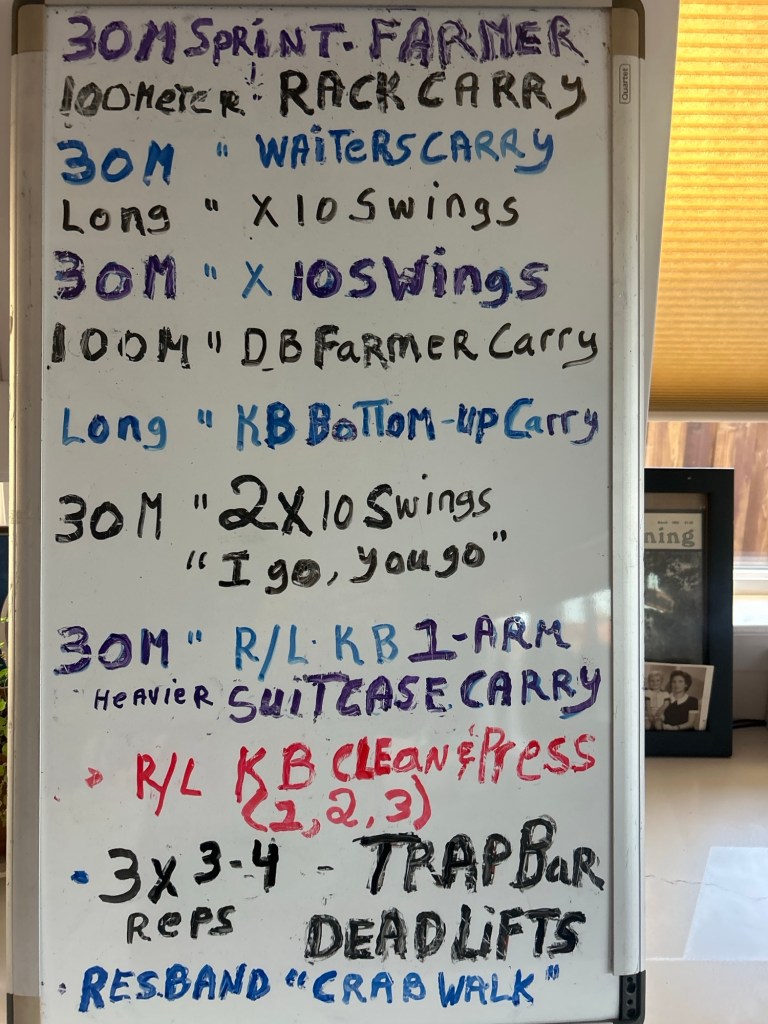 30M SPRiNT. FARMER
100METER " RACK CARRY
30M " WAiTERS CARRY
Long " X 10 Swings
30M " X 10 SWings
100M " DB FaRMER Carry
Long " KB BoTTOM-UP Carry
30M " 2X10 Swings
"I go, you go"
30M " R/L. KB 1-ARM
HEAViER SUiTCASE CARRY
R/L KB CLEan & PRess
(1, 2, 3)
• 3x 3-4 - TRAP BaR
REPS DEADLiFTS
• RES.BAND "CRAB WALK"
Quartet
ning